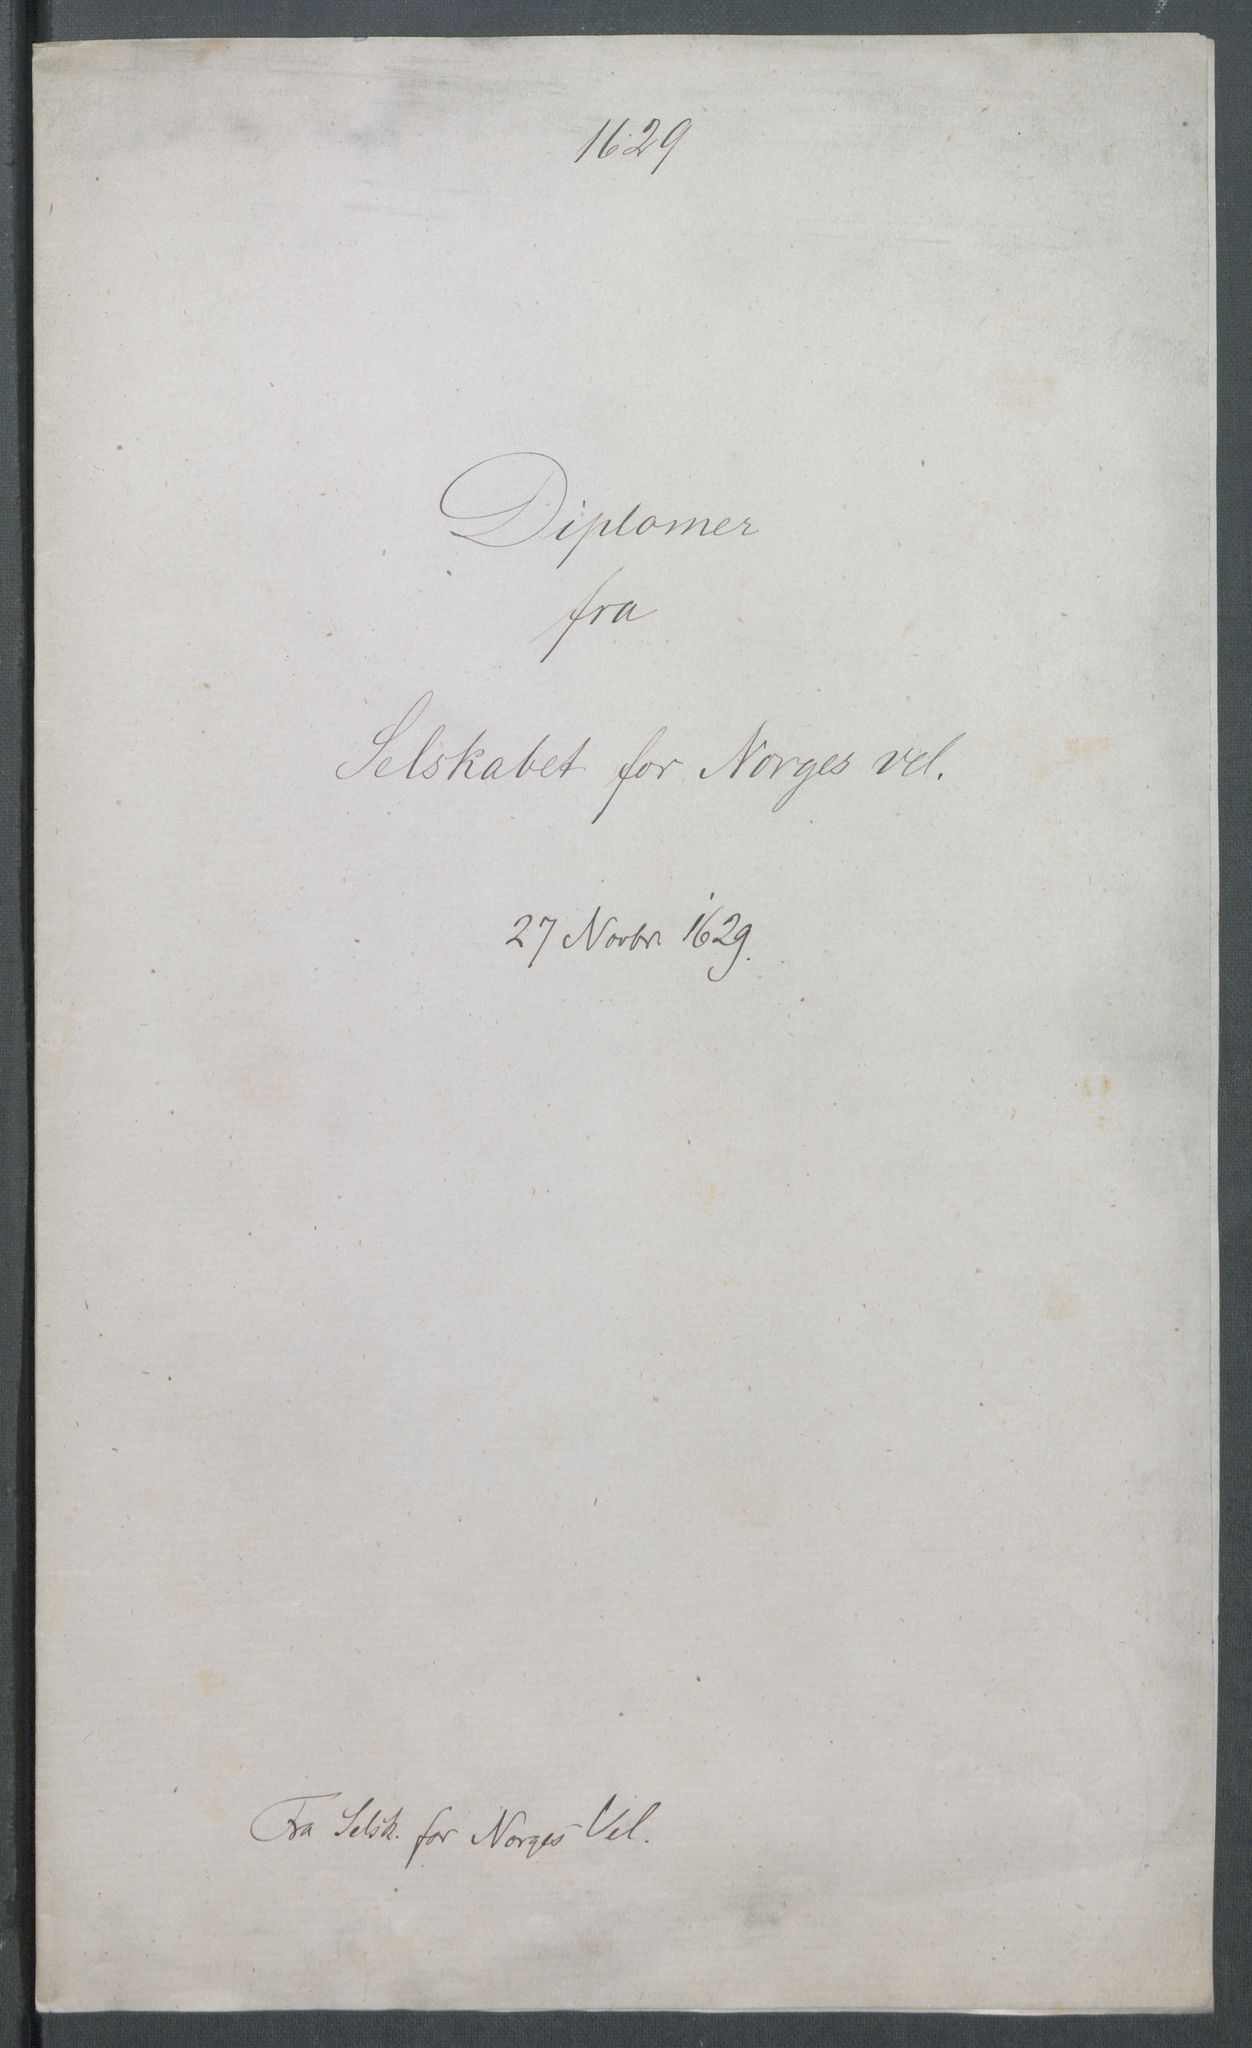 1629
Diplomer
fra
Selskabet for Norges vel.
27 Novbr 1629.
Fra Selsk. for Norges Vel.